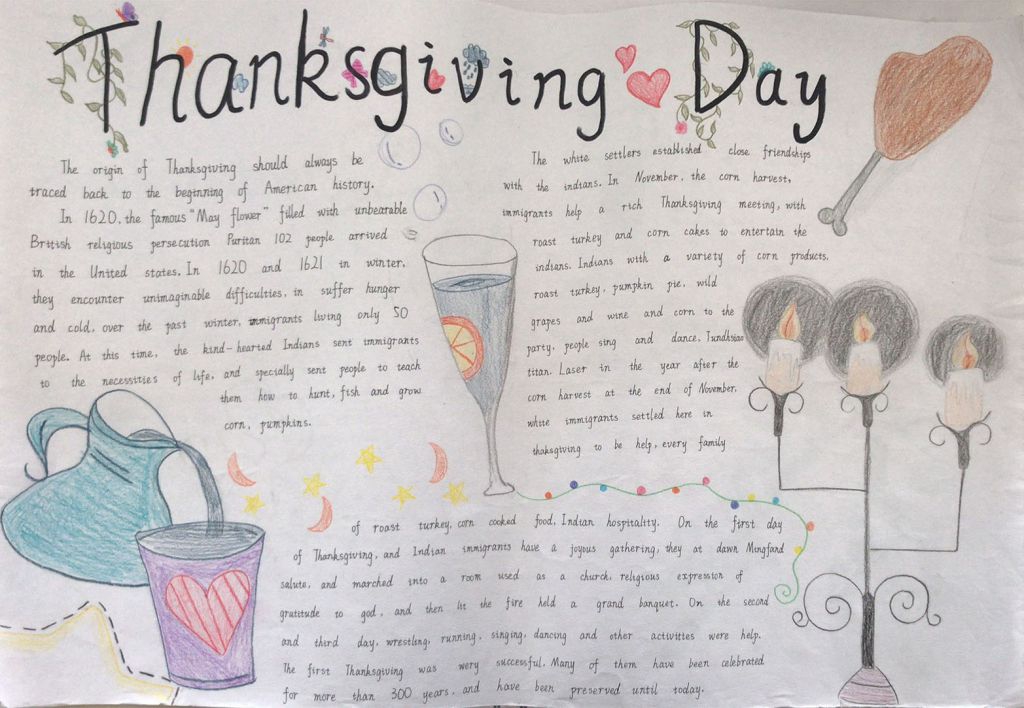 Thanksgiving Day
The origin of Thanksgiving should always be
traced back to the beginning of American history.
In 1620, the famous "May flower" filled with unbearable
British religious persecution Puritan 102 people arrived
in the United states. In 1620 and 1621 in winter,
they encounter unimaginable difficulties, in suffer hunger
and cold, over the past winter, immigrants living only 50
people. At this time, the kind-hearted Indians sent immigrants
to the necessities of life, and specially sent people to teach
them how to hunt, fish and grow
corn, pumpkins.
The white settlers established close friendships
with the indians. In November, the corn harvest,
immigrants help a rich Thanksgiving meeting, with
roast turkey and corn cakes to entertain the
indians. Indians with a variety of corn products,
roast turkey, pumpkin pie, wild
grapes and wine and corn to the
party, people sing and dance,
titan. Laser in the year after the
corn harvest at the end of November,
white immigrants settled here in
thaksgiving to be help, every family
of roast turkey, corn cooked food, Indian hospitality. On the first day
of Thanksgiving, and Indian immigrants have a joyous gathering, they at dawn Mongfand
salute, and marched into a room used as a church, religious expression of
gratitude to god, and then lit the fire held a grand banquet. On the second
and third day, wrestling, running, singing, dancing and other activities were help.
The first Thanksgiving was wery successful. Many of them have been celebrated
for more than 300 years, and have been preserved until today.